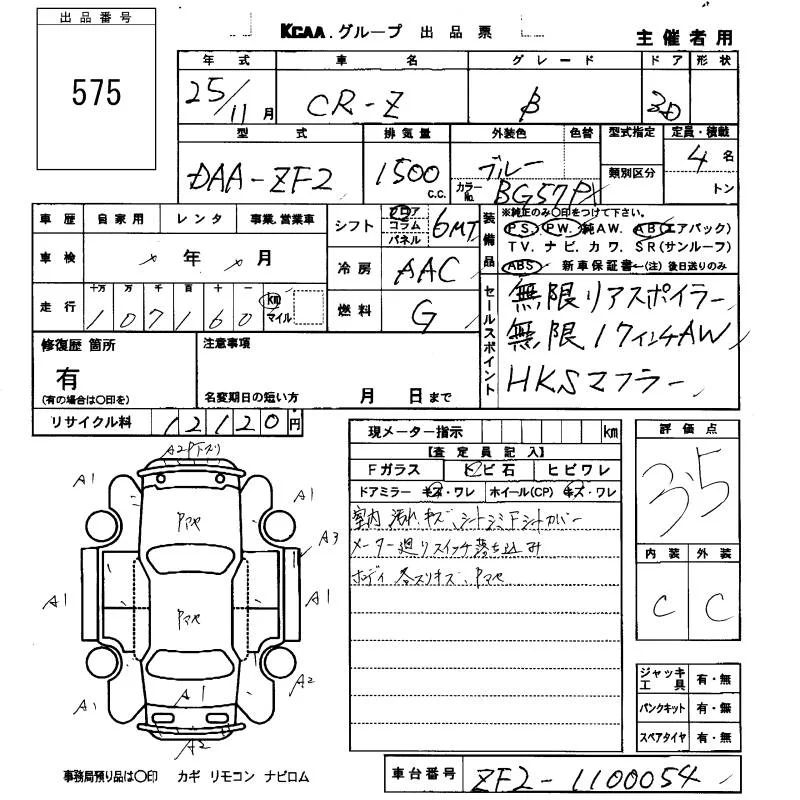 出品番号
575
KCAA.グループ 出品票
主催者用
年式 車名 グレード ドア 形状
25/11月 CR-Z β 3D
型式 排気量 外装色 色替 型式指定 定員・積載
DAA-ZF2 1500 C.C. ブルー 4名
カラーNo. BG57P 類別区分 トン
車歴 自家用 レンタ 事業.営業車
シフト フロア コラム パネル 6MT
装備品
※純正のみ○印をつけて下さい。
PS. PW. 純AW. AB(エアバック)
TV. ナビ. カワ. SR(サンルーフ)
ABS 新車保証書←(注)後日送りのみ
車検 年 月
冷房 AAC
走行 十万 万 千 百 十 一
107160 km マイル
燃料 G
セールスポイント
無限リアスポイラー
無限17インチAW
HKSマフラー
修復歴 箇所
有
(有の場合は○印を)
注意事項
名変期日の短い方 月 日まで
リサイクル料 12120円
現メーター指示 km
【査定員記入】
Fガラス トビ石 ヒビワレ
ドアミラー キズ・ワレ ホイール(CP) キズ・ワレ
室内 汚れ.キズ、シートシミ Fシートカバー
メーター廻りスイッチ落ち込み
ボディ 各スリキズ、Pマセ
評価点
3.5
内装 外装
C C
A2P下ズリ
A1 A1
Pマセ
A3
A1 A1
Pマセ
A1 A1 A2
A2
ジャッキ工具 有・無
パンクキット 有・無
スペアタイヤ 有・無
事務局預り品は○印 カギ リモコン ナビロム
車台番号 ZF2-1100054